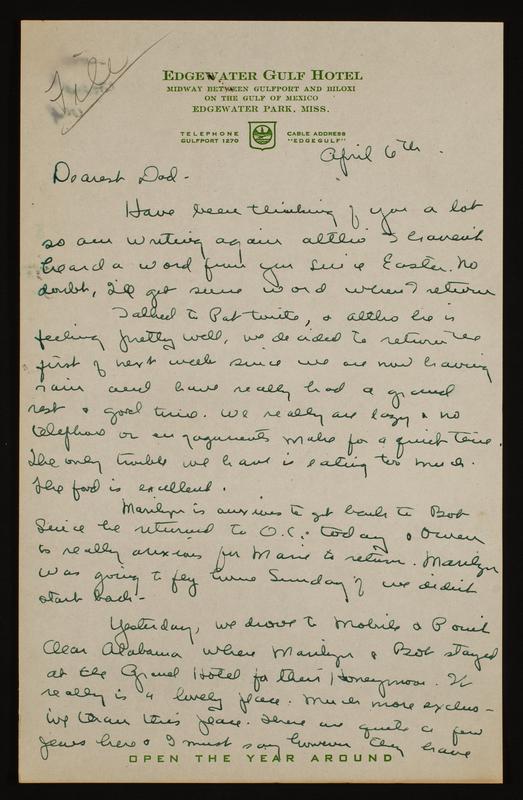 File
EDGEWATER GULF HOTEL
MIDWAY BETWEEN GULFPORT AND BILOXI
ON THE GULF OF MEXICO
EDGEWATER PARK, MISS.
TELEPHONE
GULFPORT 1270
CABLE ADDRESS
"EDGEGULF"
April 6th.
Dearest Dad-
Have been thinking of you a lot
so am writing again altho I haven't
heard a word from you since Easter. No
doubt, I'll get some word when I return
Talked to Pat twice, & altho he is
feeling pretty well, we decided to return the
first of next week since we are now having
rain and have really had a grand
rest & good time. We really are lazy & no
telephone or engagements make for a quiet time.
The only trouble we have is eating too much.
The food is excellent.
Marilyn is anxious to get back to Bob
since he returned to O.C. today & Owen
is really anxious for Marie to return. Marilyn
was going to fly home Sunday if we didn't
start back-
Yesterday, we drove to Mobile & Point
Clear Alabama where Marilyn & Bob stayed
at the Grand Hotel for their Honeymoon. It
really is a lovely place. Much more exclus-
ive than this place. There are quite a few
Jews here & I must say however they have
OPEN THE YEAR AROUND